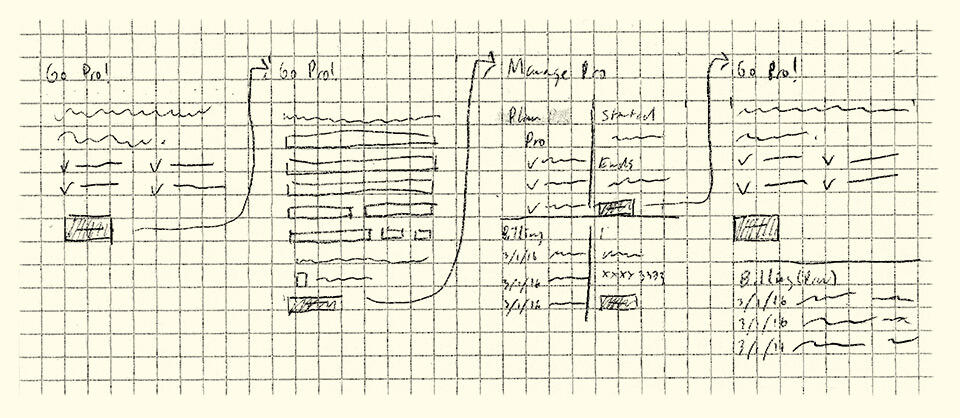 Go Pro!
Go Pro!
Manage Pro
Plan
Pro
Started
Ends
Billing
3/1/16
3/1/16
3/1/16
xxxx 3333
Go Pro!
Billing
3/1/16
3/1/16